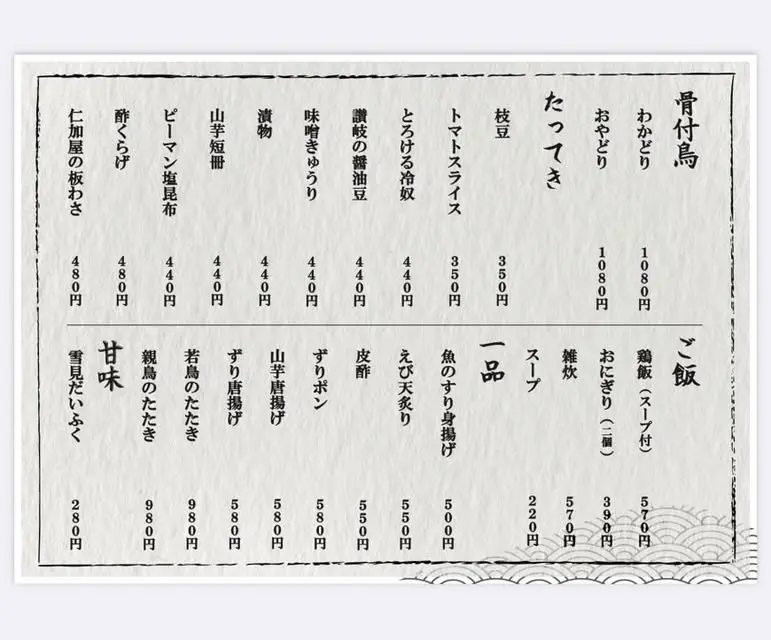 骨付鳥
わかどり 1080円
おやどり 1080円
たってき
枝豆 350円
トマトスライス 350円
とろける冷奴 440円
讃岐の醤油豆 440円
味噌きゅうり 440円
漬物 440円
山芋短冊 440円
ピーマン塩昆布 440円
酢くらげ 480円
仁加屋の板わさ 480円
ご飯
鶏飯（スープ付） 570円
おにぎり（二個） 390円
雑炊 570円
スープ 220円
一品
魚のすり身揚げ 500円
えび天炙り 550円
皮酢 550円
ずりポン 580円
山芋唐揚げ 580円
ずり唐揚げ 580円
若鳥のたたき 980円
親鳥のたたき 980円
甘味
雪見だいふく 280円